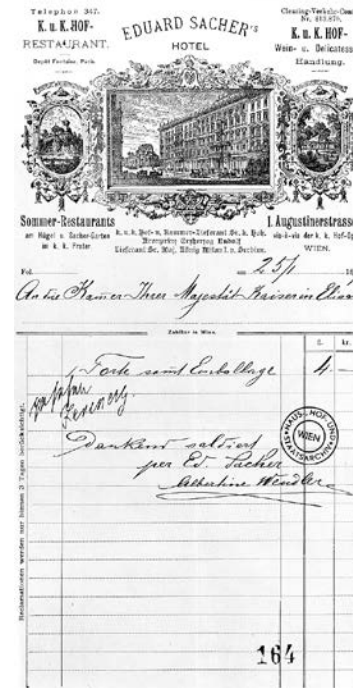 Telephon 347.
K. u. K. HOF-
RESTAURANT.
Depôt Fortuine, Park.
EDUARD SACHER's
HOTEL
Clearing-Verkehr-Con
Nr. 813.879.
K. u. K. HOF-
Wein- u. Delicatess
Handlung.
Sommer-Restaurants
am Hügel u. Sacher-Garten
im k. k. Prater
k. u. k. Hof- u. Kammer-Lieferant Sr. k. Hoh.
Kronprinz Erzherzog Rudolf
Lieferant Sr. Maj. König Milan I. v. Serbien.
I. Augustinerstrasse
vis-à-vis der k. k. Hof-Op
WIEN.
Fol.
am 25/1 18
An die Kammer Ihrer Majestät Kaiserin Elisa
Zahlbar in Wien.
fl. kr.
1 Torte samt Emballage 4.–
Dankend saldiert
per Ed. Sacher
Albertine Wendler
HAUS-, HOF- UND
STAATSARCHIV
WIEN
Reclamationen werden nur binnen 3 Tagen berücksichtigt.
164